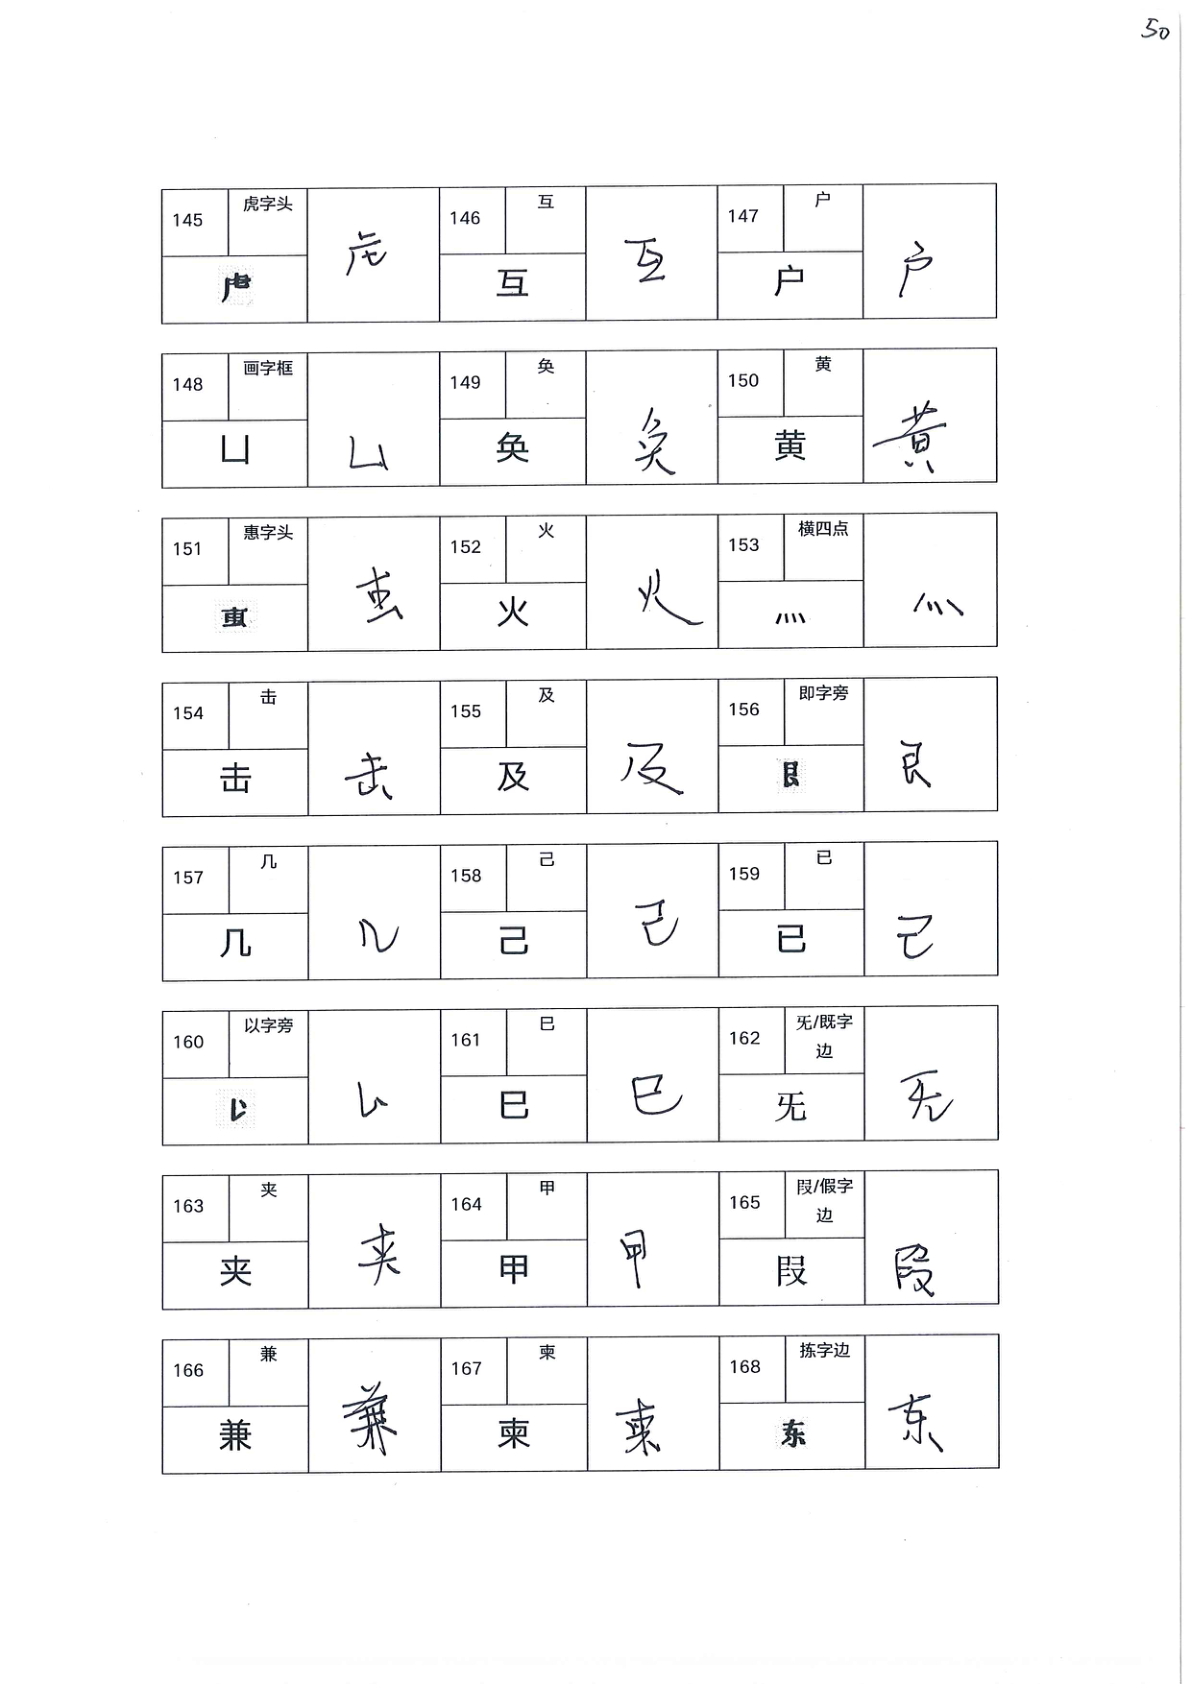 50
145 虎字头 虍 146 互 互 147 户 户
虍 互 互 户 户
148 画字框 凵 149 奂 奂 150 黄 黄
凵 奂 黄
151 惠字头 152 火 火 153 横四点 灬
火 灬
154 击 击 155 及 及 156 即字旁
击 及
157 几 几 158 己 己 159 已 已
几 己 已
160 以字旁 161 巳 巳 162 旡/既字 旡
边
巳 旡
163 夹 夹 164 甲 甲 165 叚/假字 叚
边
夹 甲 叚
166 兼 兼 167 柬 柬 168 拣字边
兼 柬